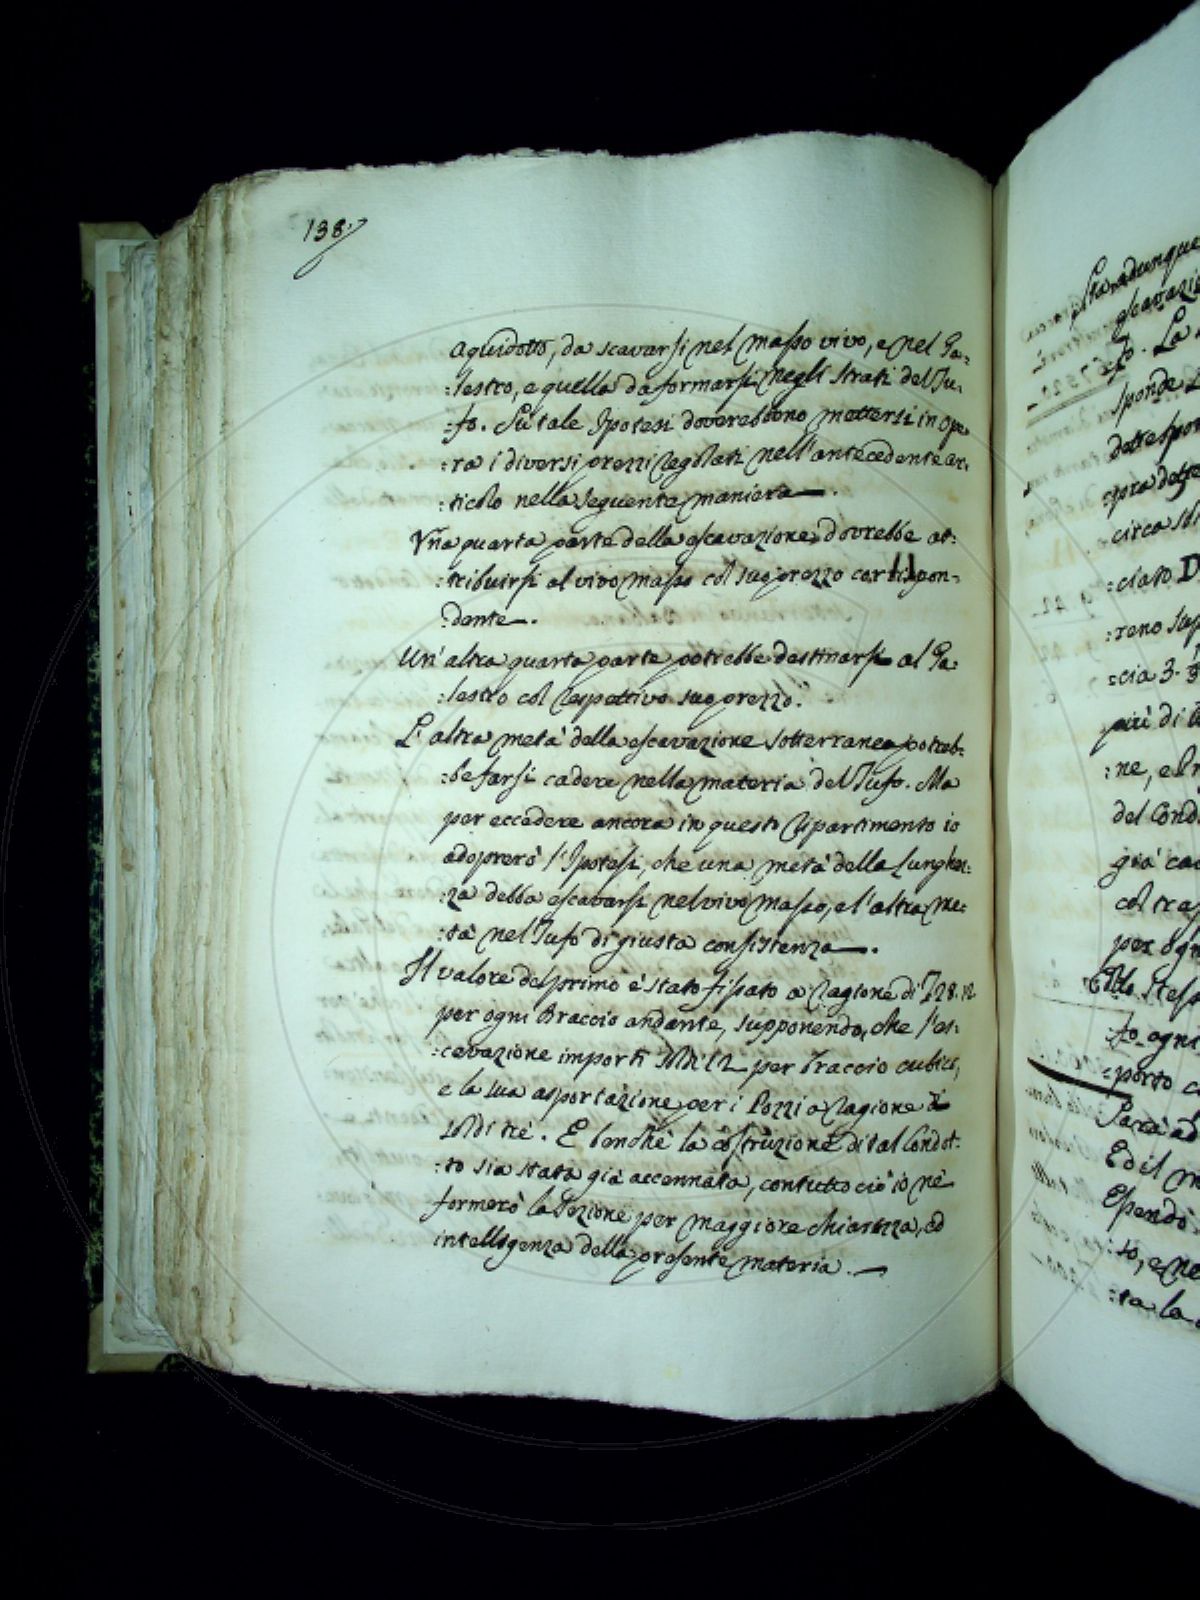 138.
aquidotto, da scavarsi nel masso vivo, e nel Ga:
:lestro, e quella da formarsi negli strati del Tu:
:fo. Su tale Ipotesi doverebbono mettersi in ope:
:ra i diversi prezzi regolati nell'antecedente ar:
:ticolo nella seguente maniera —.
Una quarta parte della escavazione dovrebbe at:
:tribuirsi al vivo masso col suo prezzo corrispon-
:dente —.
Un'altra quarta parte potrebbe destinarsi al Ga:
:lestro col respettivo suo prezzo.
L'altra metà della escavazione sotterranea potreb:
:be farsi cadere nella materia del Tufo. Ma
per eccedere ancora in questo ripartimento io
adoprerò l'Ipotesi, che una metà della lunghez:
:za debba escavarsi nel vivo masso, e l'altra me:
:tà nel Tufo di giusta consistenza —.
Il valore del primo è stato fissato a ragione di 28.12
per ogni Braccio andante, supponendo, che l'es:
:cavazione importi soldi 12 per braccio cubico,
e la sua asportazione per i Pozzi a ragione di
soldi tre. E benchè la costruzione di tal Condot:
:to sia stata già accennata, contuttociò io ne
formerò la sezione per maggiore chiarezza, ed
intelligenza della presente materia. —
Sia adunque
escavazio
fo. La
sponde
dette spon
:pra dette
circa
:clato D
:reno
:cia 3.
più di
:ne, e
del Cond
già
col tras
per ogn
:fo ogni
:porto
Sarà ad
Ed il
Ependo
:to, e ne
:ta la